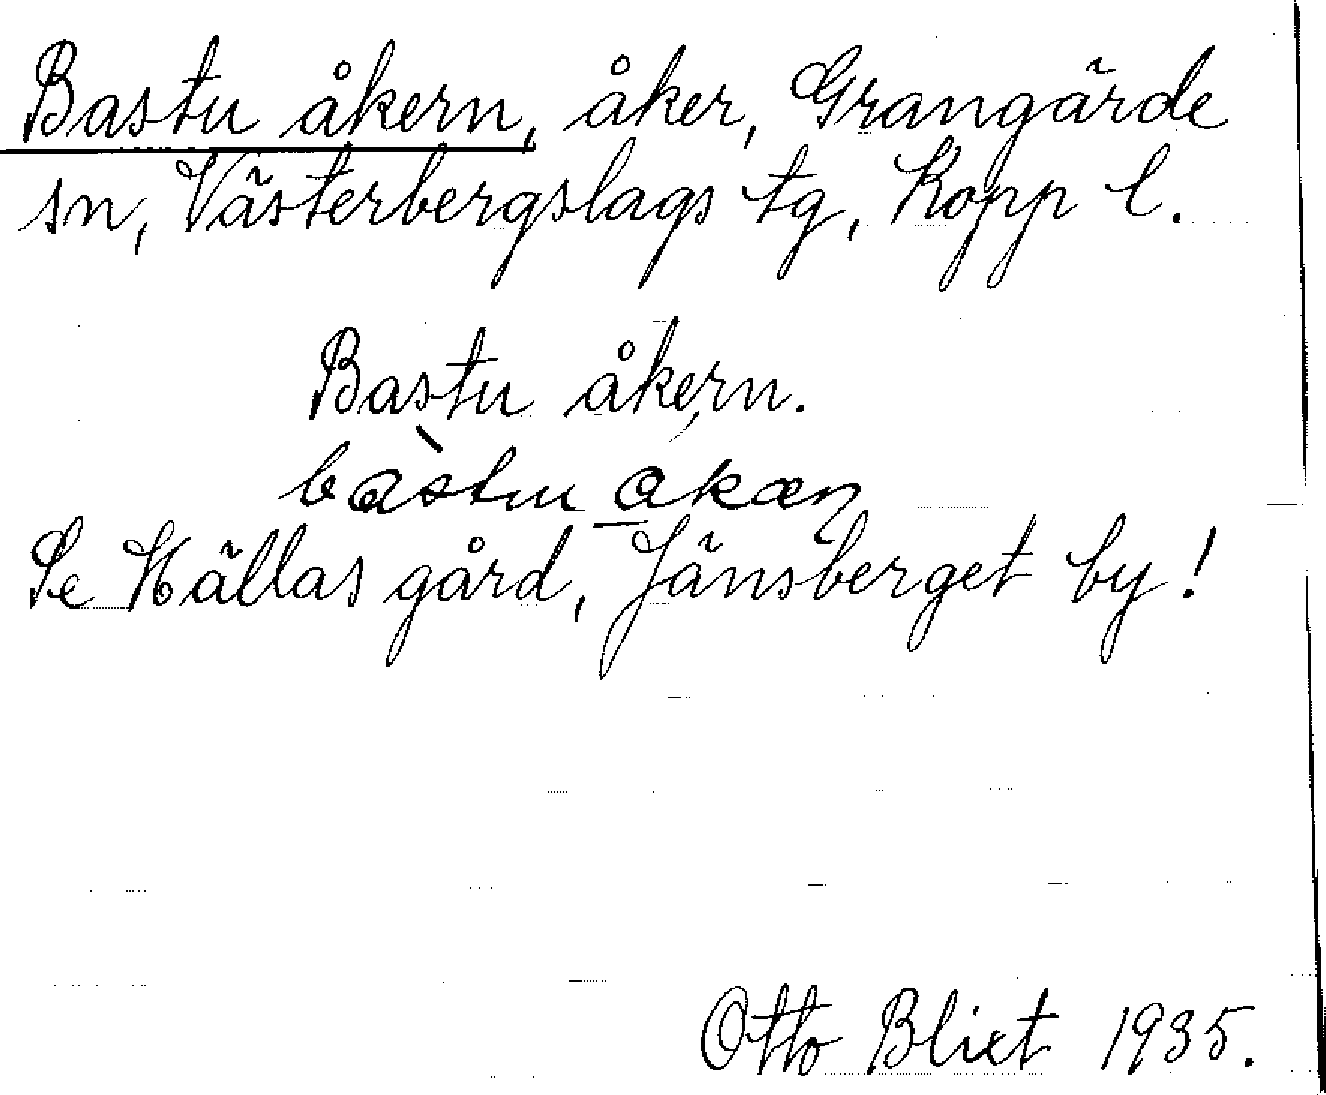 Bastu åkern, åker, Grangärde
sn, Västerbergslags tg, Kopp l.
Bastu åkern.
bàstu akæn
Se Hällas gård, Jänsberget by!
Otto Blixt 1935.